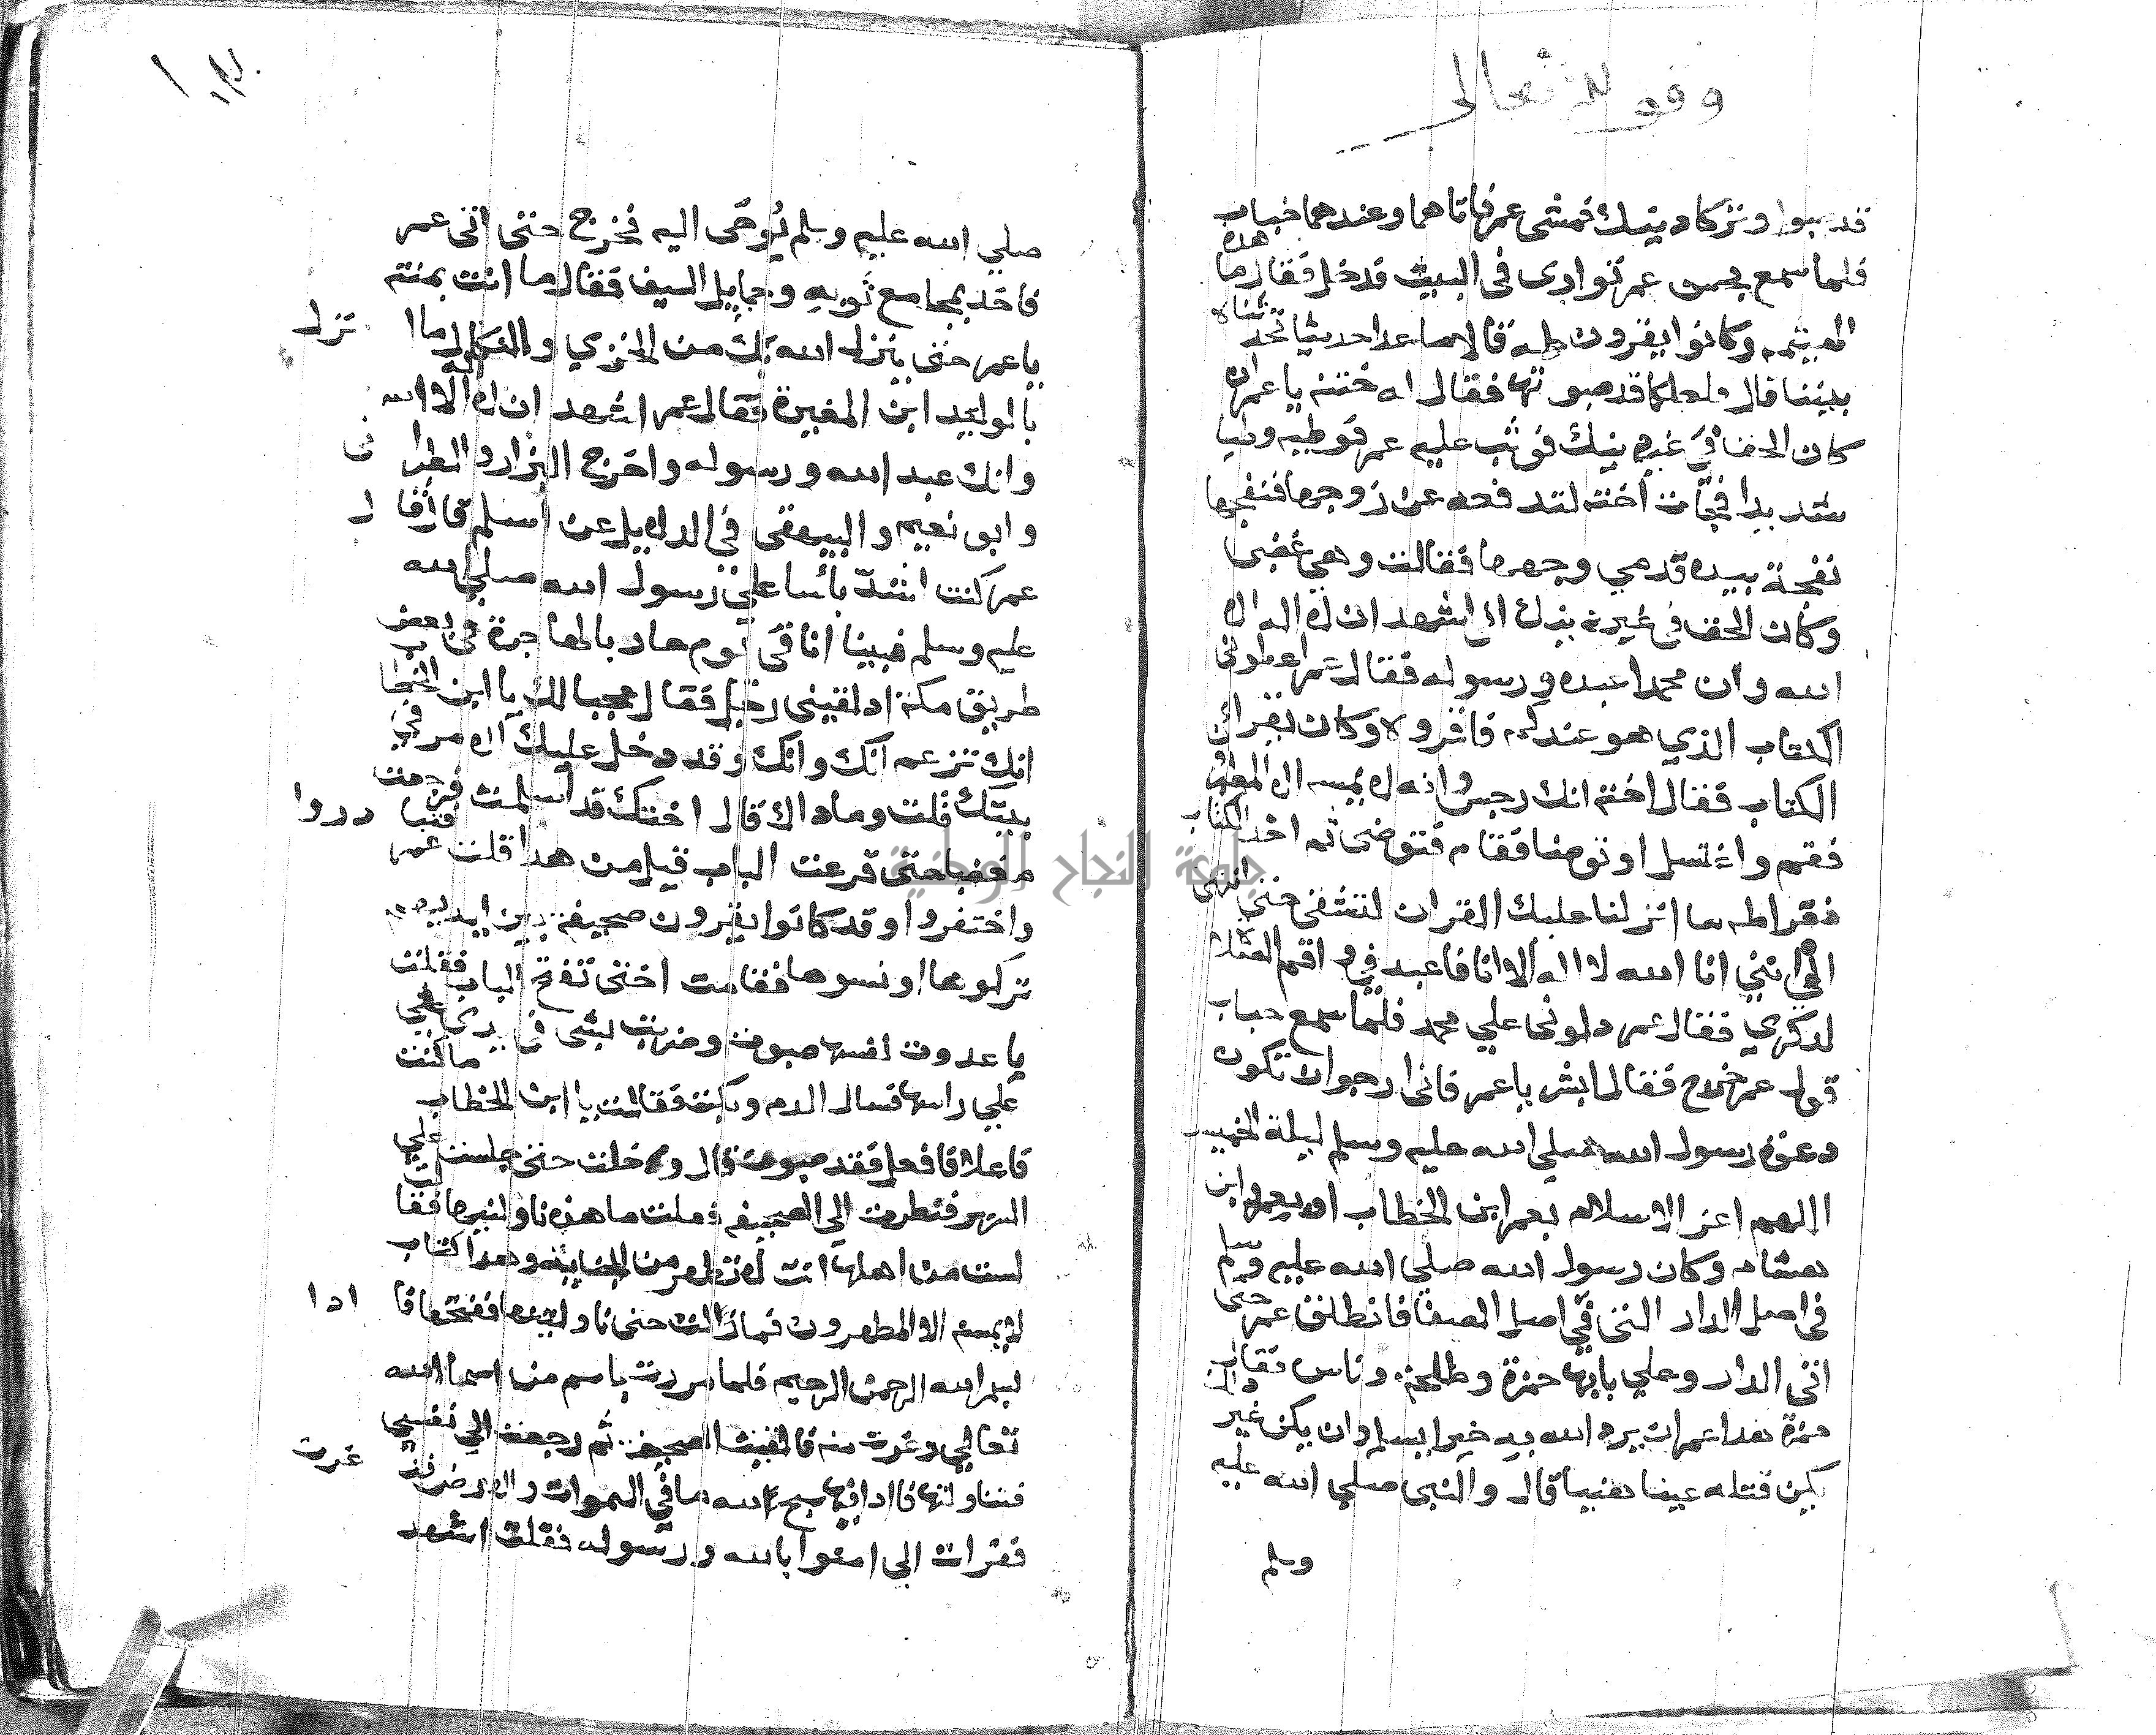 وقف لله تعالى
قد صبوا وتركا دينك فمشى عمر فاتاهما وعندهما خباب
فلما سمع بحس عمر توارى فى البيت فدخل فقال ما هذه
الهينمه وكانوا يقرون طه قالا ما عدا حديثا تحدثناه
بيننا قال ولعلكما قد صبوتما فقال له ختنه يا عمر ان
كان الحق في غير دينك فوثب عليه عمر فوطيه وطيا
شديدا فجات اخته لتدفعه عن زوجها فنفحها
نفحة بيده فدمي وجهها فقالت وهي غضبى
وكان الحق فى غير دينك انى اشهد ان لا اله الا
الله وان محمدا عبده ورسوله فقال عمر اعطونى
الكتاب الذي هو عندكم فاقروه وكان يقرا
الكتاب فقالت اخته انك رجس وانه لا يمسه الا المطهرون
فقم واغتسل او توضا فقام فتوضى ثم اخذ الكتاب
فقرا طه ما انزلنا عليك القران لتشقى حتى انتهى
الى انني انا الله لا اله الا انا فاعبدني واقم الصلاة
لذكري فقال عمر دلونى علي محمد فلما سمع خباب
قول عمر خرج فقال ابشر يا عمر فانى ارجو ان تكون
دعوة رسول الله صلي الله عليه وسلم ليلة الخميس
اللهم اعز الاسلام بعمر ابن الخطاب او بعمرو ابن
هشام وكان رسول الله صلي الله عليه وسلم
فى اصل الدار التى في اصل الصفا فانطلق عمر حتى
اتى الدار وعلي بابها حمزة وطلحة وناس فقال
حمزة هذا عمر ان يرد الله به خيرا يسلم وان يكن غير ذالك
يكن قتله علينا هينا قال والنبى صلي الله عليه
وسلم
صلي الله عليه وسلم يُوحَى اليه فخرج حتى اتى عمر
فاخذ بمجامع ثوبه وحمايل السيف فقال ما انت بمنته
يا عمر حتى ينزل الله بك من الخزي والنكال ما انزل
بالوليد ابن المغيرة فقال عمر اشهد ان لا اله الا الله
وانك عبد الله ورسوله واخرج البزار والطبرانى
وابو نعيم والبيهقى في الدلايل عن اسلم قال قال
عمر كنت اشد باسا علي رسول الله صلي الله
عليه وسلم فبينا انا فى يوم حار بالهاجرة في بعض
طريق مكة اذ لقيني رجل فقال عجبا لك يا ابن الخطاب
انك تزعم انك وانك وقد دخل عليك الامر في
بيتك قلت وما ذاك قال اختك قد اسلمت فرجعت
مغضبا حتى قرعت الباب قيل من هذا قلت عمر فتبادروا
واختفوا وقد كانوا يقرون صحيفة بين ايديهم
تركوها او نسوها فقامت اختى تفتح الباب فقلت
يا عدوت نفسها صبوت وضربت بشى فى يدى
علي راسها فسال الدم وبكت فقالت يا ابن الخطاب ما كنت
فاعلا فافعل فقد صبوت قال ودخلت حتى جلست علي
السرير فنظرت الي الصحيفه فقلت ما هذه ناولنيها فقالت
لست من اهلها انت لا تطهر من الجنابة وهذا كتاب
لا يمسه الا المطهرون فما زالت حتى ناولتنيها ففتحتها فاذا
بسم الله الرحمن الرحيم فلما مررت باسم من اسما الله
تعالي ذعرت منه فالقيت الصحيفة ثم رجعت الي نفسي
فتناولتها فاذا فيها سبح لله ما في السموات والارض فذعرت
فقرات الي امنوا بالله ورسوله فقلت اشهد
جامعة النجاح الوطنية